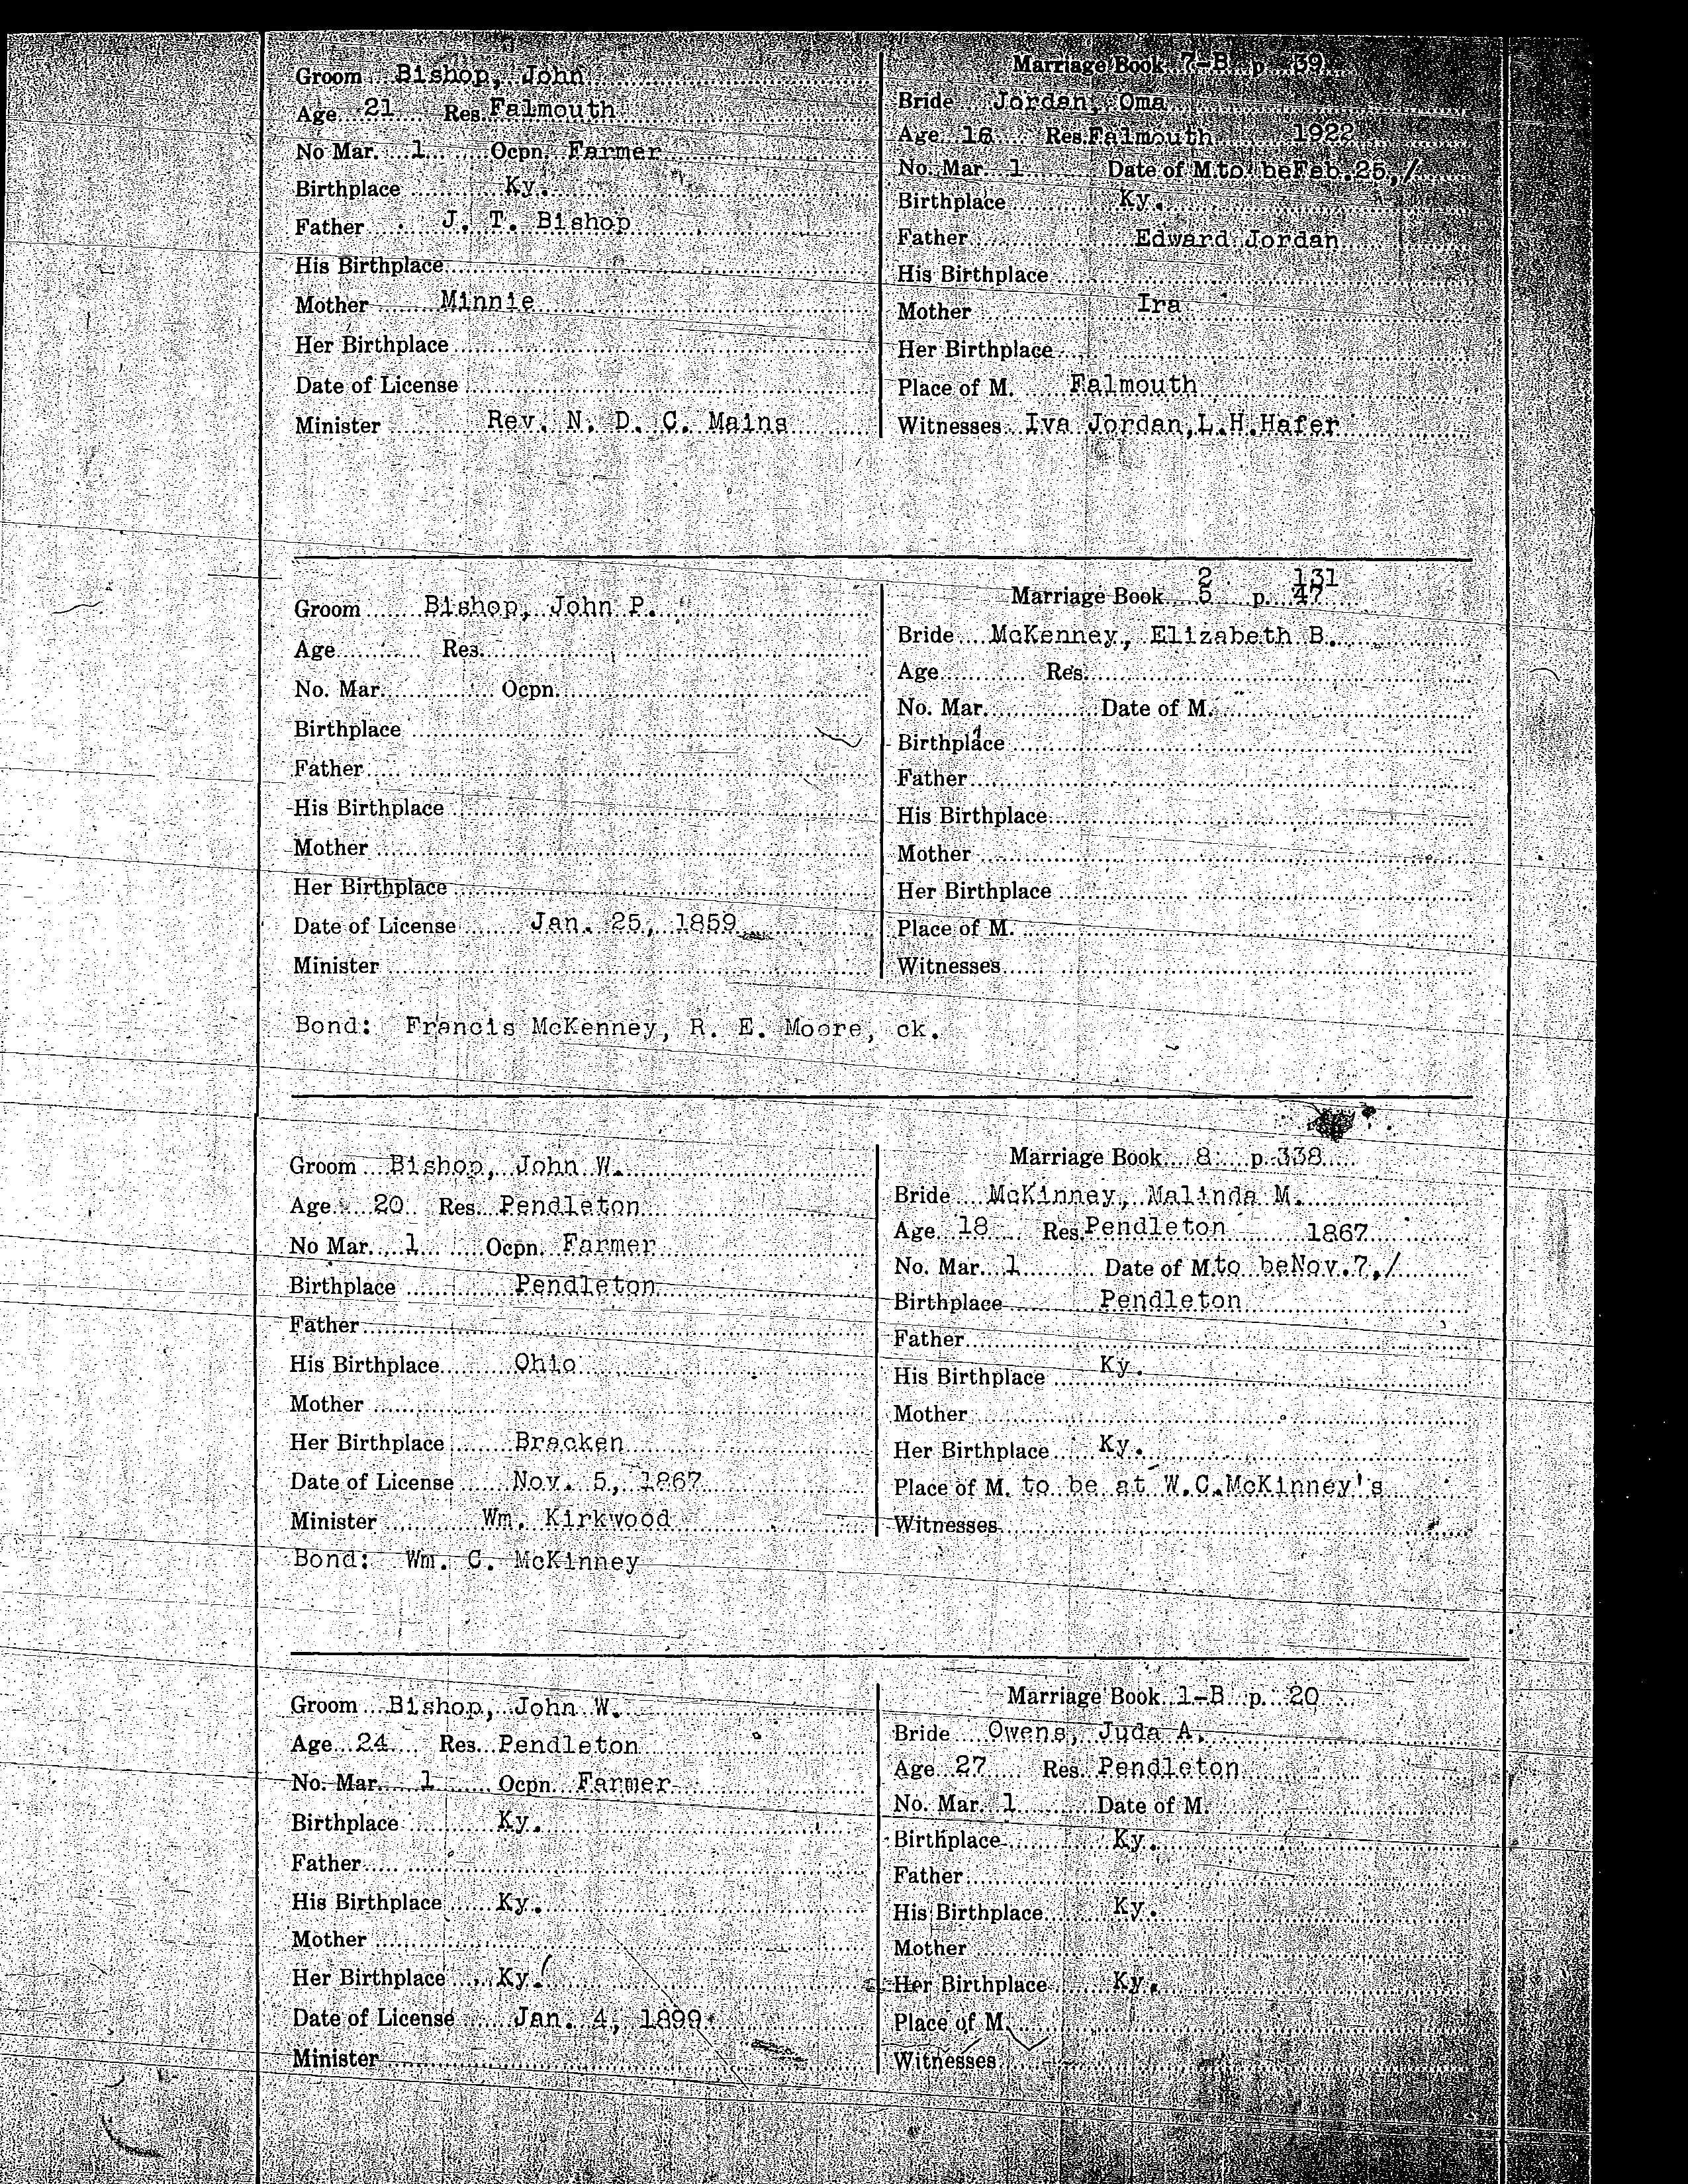 Groom Bishop, John
Age 21 Res. Falmouth
No Mar. 1 Ocpn. Farmer
Birthplace Ky.
Father J. T. Bishop
His Birthplace
Mother Minnie
Her Birthplace
Date of License
Minister Rev. N. D. C. Mains
Marriage Book 7-B p 39
Bride Jordan, Oma
Age 16 Res. Falmouth 1922
No. Mar. 1 Date of M. to be Feb. 25, /
Birthplace Ky.
Father Edward Jordan
His Birthplace
Mother Ira
Her Birthplace
Place of M. Falmouth
Witnesses Iva Jordan, L.H.Hafer
Groom Bishop, John P.
Age Res.
No. Mar. Ocpn.
Birthplace
Father
His Birthplace
Mother
Her Birthplace
Date of License Jan. 25, 1859
Minister
2 131
Marriage Book 5 p. 47
Bride McKenney, Elizabeth B.
Age Res.
No. Mar. Date of M.
Birthplace
Father
His Birthplace
Mother
Her Birthplace
Place of M.
Witnesses
Bond: Francis McKenney, R. E. Moore, ck.
Groom Bishop, John W.
Age 20 Res. Pendleton
No Mar. 1 Ocpn. Farmer
Birthplace Pendleton
Father
His Birthplace Ohio
Mother
Her Birthplace Bracken
Date of License Nov. 5, 1867
Minister Wm. Kirkwood
Marriage Book 8 p. 338
Bride McKinney, Malinda M.
Age 18 Res. Pendleton 1867
No. Mar. 1 Date of M. to be Nov. 7, /
Birthplace Pendleton
Father
His Birthplace Ky.
Mother
Her Birthplace Ky.
Place of M. to be at W.C.McKinney's
Witnesses
Bond: Wm. C. McKinney
Groom Bishop, John W.
Age 24 Res. Pendleton
No. Mar. 1 Ocpn. Farmer
Birthplace Ky.
Father
His Birthplace Ky.
Mother
Her Birthplace Ky.
Date of License Jan. 4, 1899
Minister
Marriage Book 1-B p. 20
Bride Owens, Juda A.
Age 27 Res. Pendleton
No. Mar. 1 Date of M.
Birthplace Ky.
Father
His Birthplace Ky.
Mother
Her Birthplace Ky.
Place of M.
Witnesses